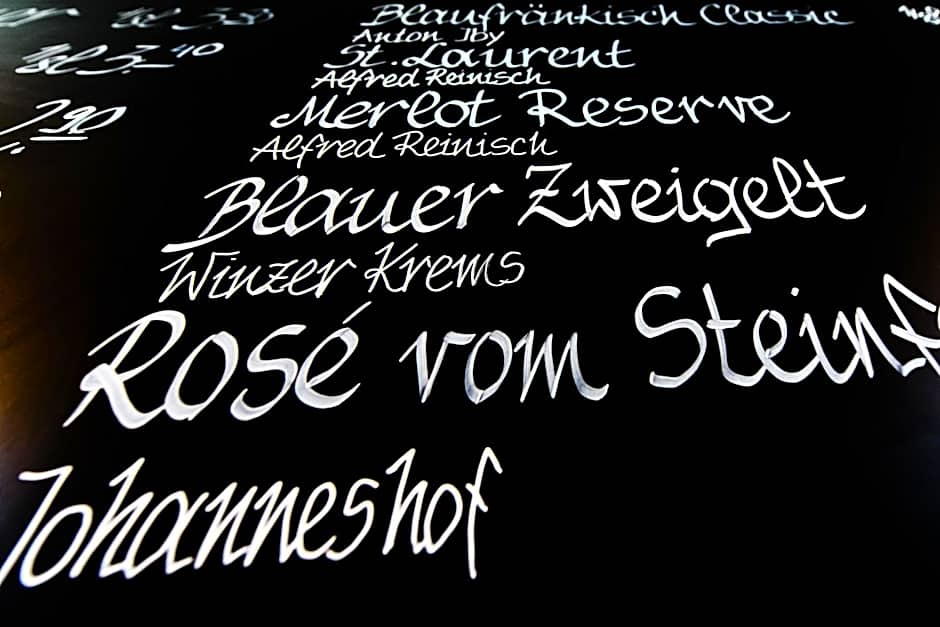 Blaufränkisch Classic
Anton Iby
3.40 St. Laurent
Alfred Reinisch
Merlot Reserve
7.90 Alfred Reinisch
Blauer Zweigelt
Winzer Krems
Rosé vom
Johanneshof